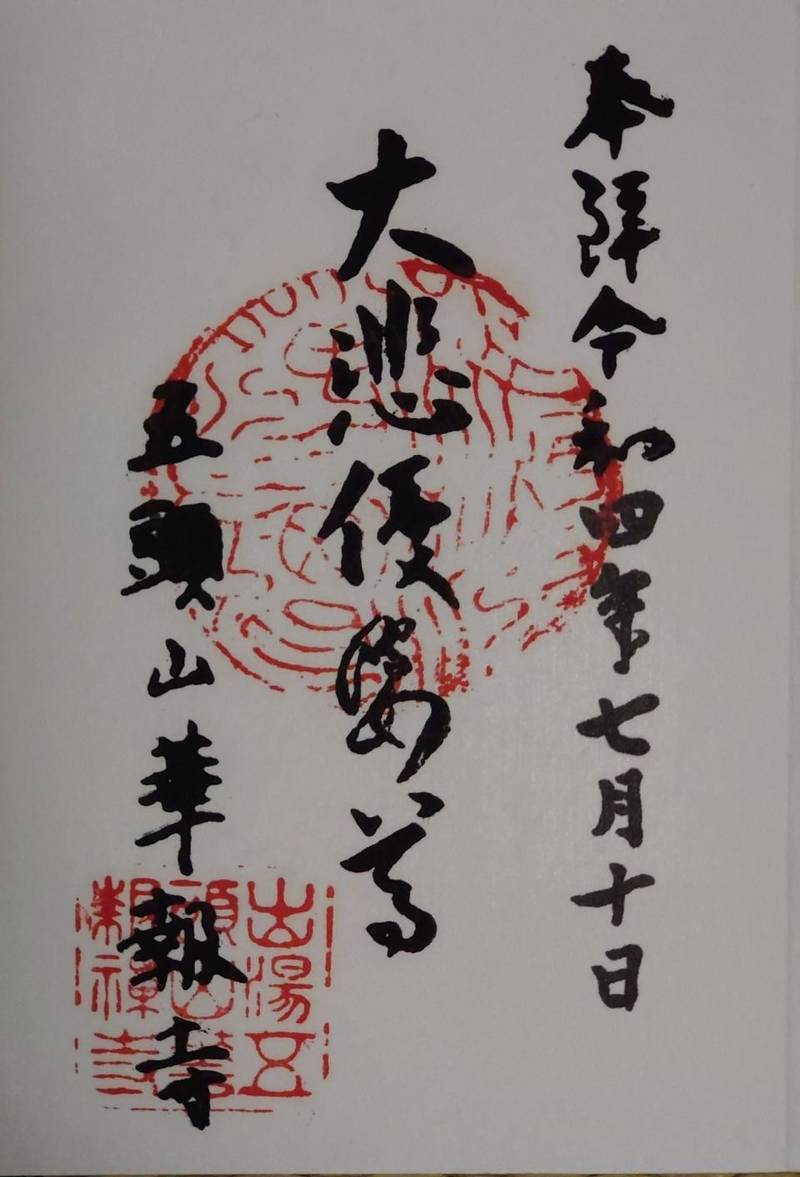 奉拝令和四年七月十日
大悲優婆尊
五頭山華報寺
出湯五
頭山華
報禅寺